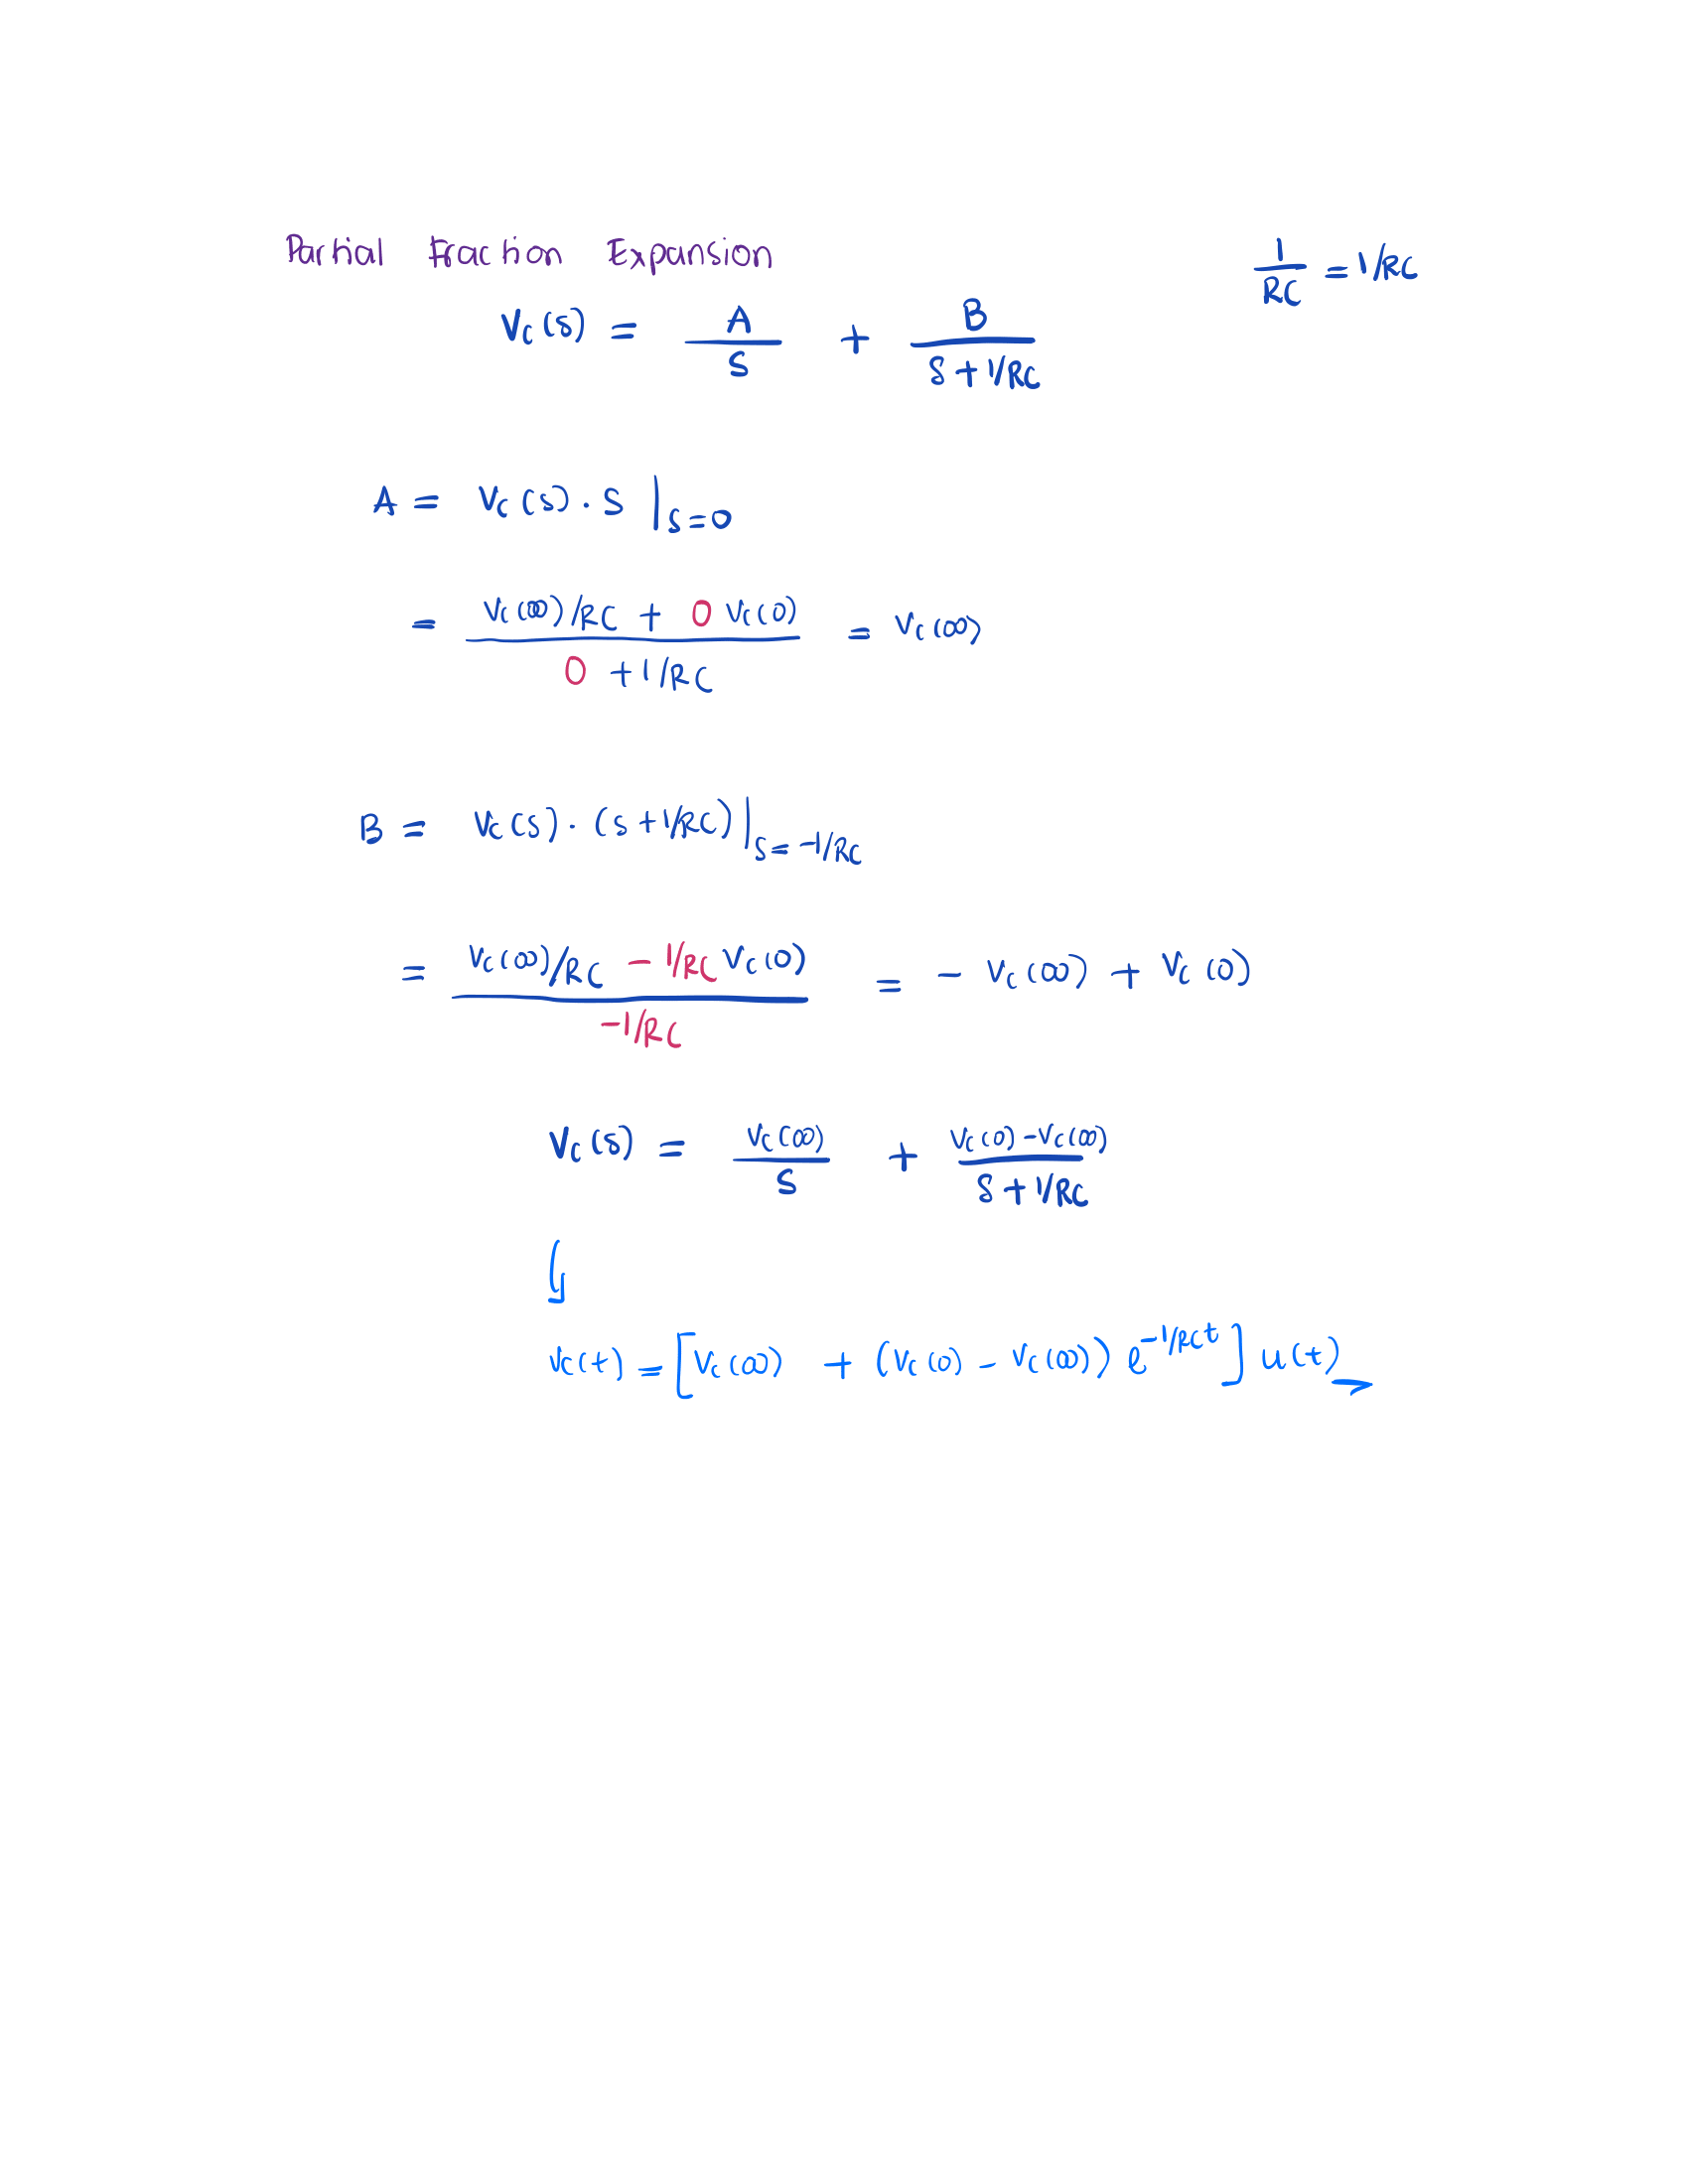 Partial Fraction Expansion
1/RC = 1/RC
Vc(s) = A/s + B/(s + 1/RC)
A = Vc(s) · s |s=0
= (Vc(∞)/RC + 0 Vc(0)) / (0 + 1/RC) = Vc(∞)
B = Vc(s) · (s + 1/RC) |s = -1/RC
= (Vc(∞)/RC - 1/RC Vc(0)) / (-1/RC) = - Vc(∞) + Vc(0)
Vc(s) = Vc(∞)/s + (Vc(0) - Vc(∞))/(s + 1/RC)
Vc(t) = [Vc(∞) + (Vc(0) - Vc(∞)) e^(-1/RC t)] u(t)